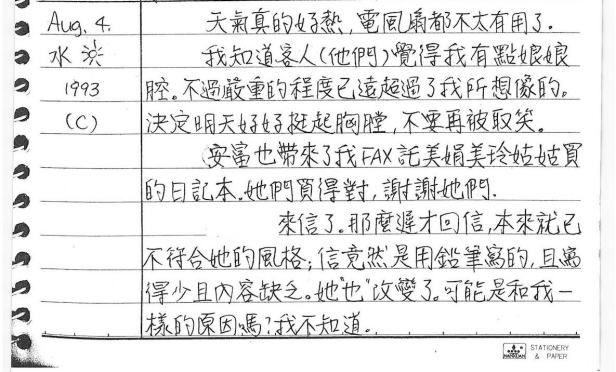 Aug. 4. 天氣真的好熱,電風扇都不太有用了.
水 我知道客人(他們)覺得我有點娘娘
1993 腔。不過嚴重的程度已遠超過了我所想像的。
(C) 決定明天好好挺起胸膛,不要再被取笑。
安富也帶來了我FAX託美娟美玲姑姑買
的日記本.她們買得對,謝謝她們.
來信了.那麼遲才回信,本來就已
不符合她的風格;信竟然是用鉛筆寫的,且寫
得少且內容缺乏。她"也"改變了.可能是和我一
樣的原因嗎?我不知道。
STATIONERY
& PAPER